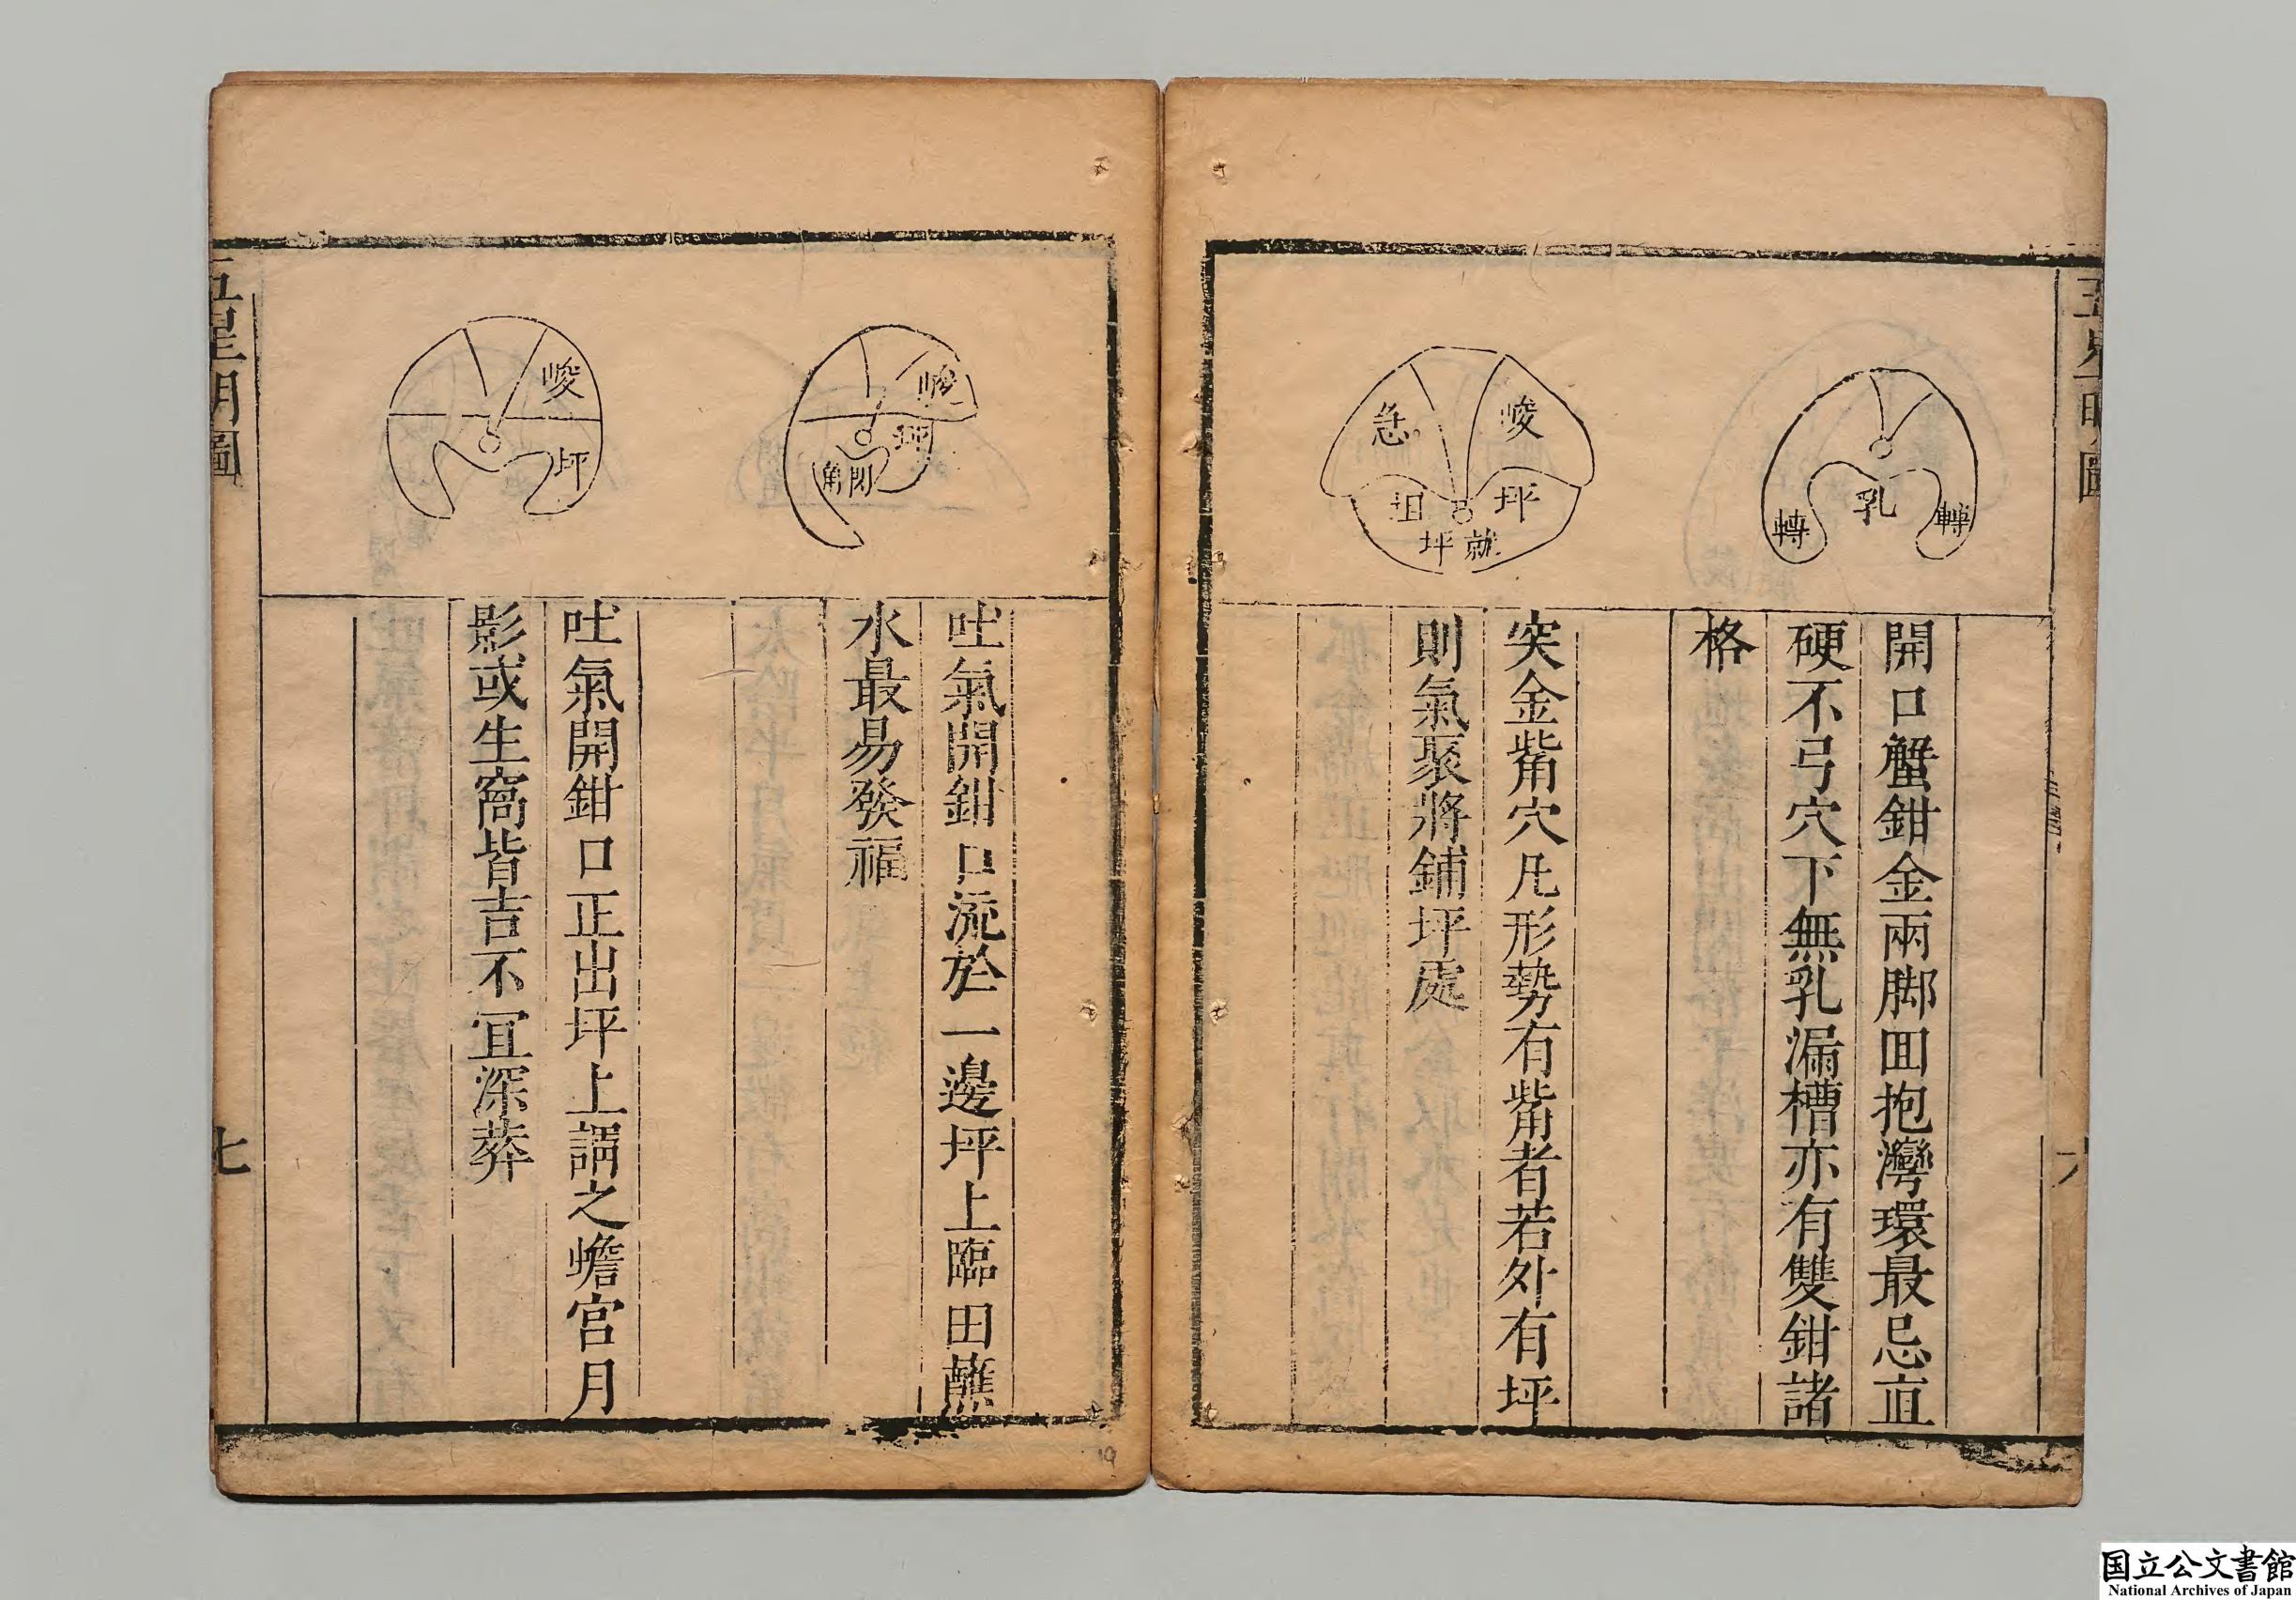 五星明圖
轉
乳
轉
開口蟹鉗金兩脚囬抱灣環最忌直
硬不弓穴下無乳漏槽亦有雙鉗諸
格
峻
急
坪
坦
就坪
突金觜穴凡形勢有觜者若外有坪
則氣聚將鋪坪處
六
峻
坪
吐氣開鉗口流於一邊坪上臨田蘸
水最易發福
峻
坪
吐氣開鉗口正出坪上謂之蟾宮月
影或生窩皆吉不冝深葬
五星明圖
七
19
国立公文書館
National Archives of Japan